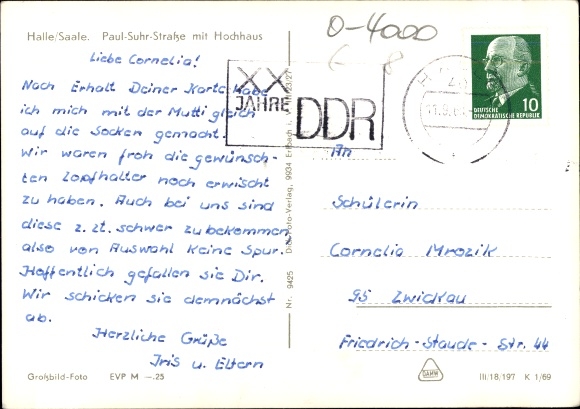 Halle/Saale. Paul-Suhr-Straße mit Hochhaus
Liebe Cornelia!
Nach Erhalt Deiner Karte habe
ich mich mit der Mutti gleich
auf die Socken gemacht.
Wir waren froh die gewünsch-
ten Zopfhalter noch erwischt
zu haben. Auch bei uns sind
diese z. Zt. schwer zu bekommen
also von Auswahl keine Spur.
Hoffentlich gefallen sie Dir.
Wir schicken sie demnächst
ab.
Herzliche Grüße
Iris u. Eltern
Großbild-Foto EVP M —.25
Nr. 9425 Dick-Foto-Verlag, 9934 Erlbach i. V.
0-4000
XX
JAHRE
DDR
10
DEUTSCHE
DEMOKRATISCHE REPUBLIK
An
Schülerin
Cornelia Mrozik
95 Zwickau
Friedrich-Staude-Str. 44
DAMW
III/18/197 K 1/69